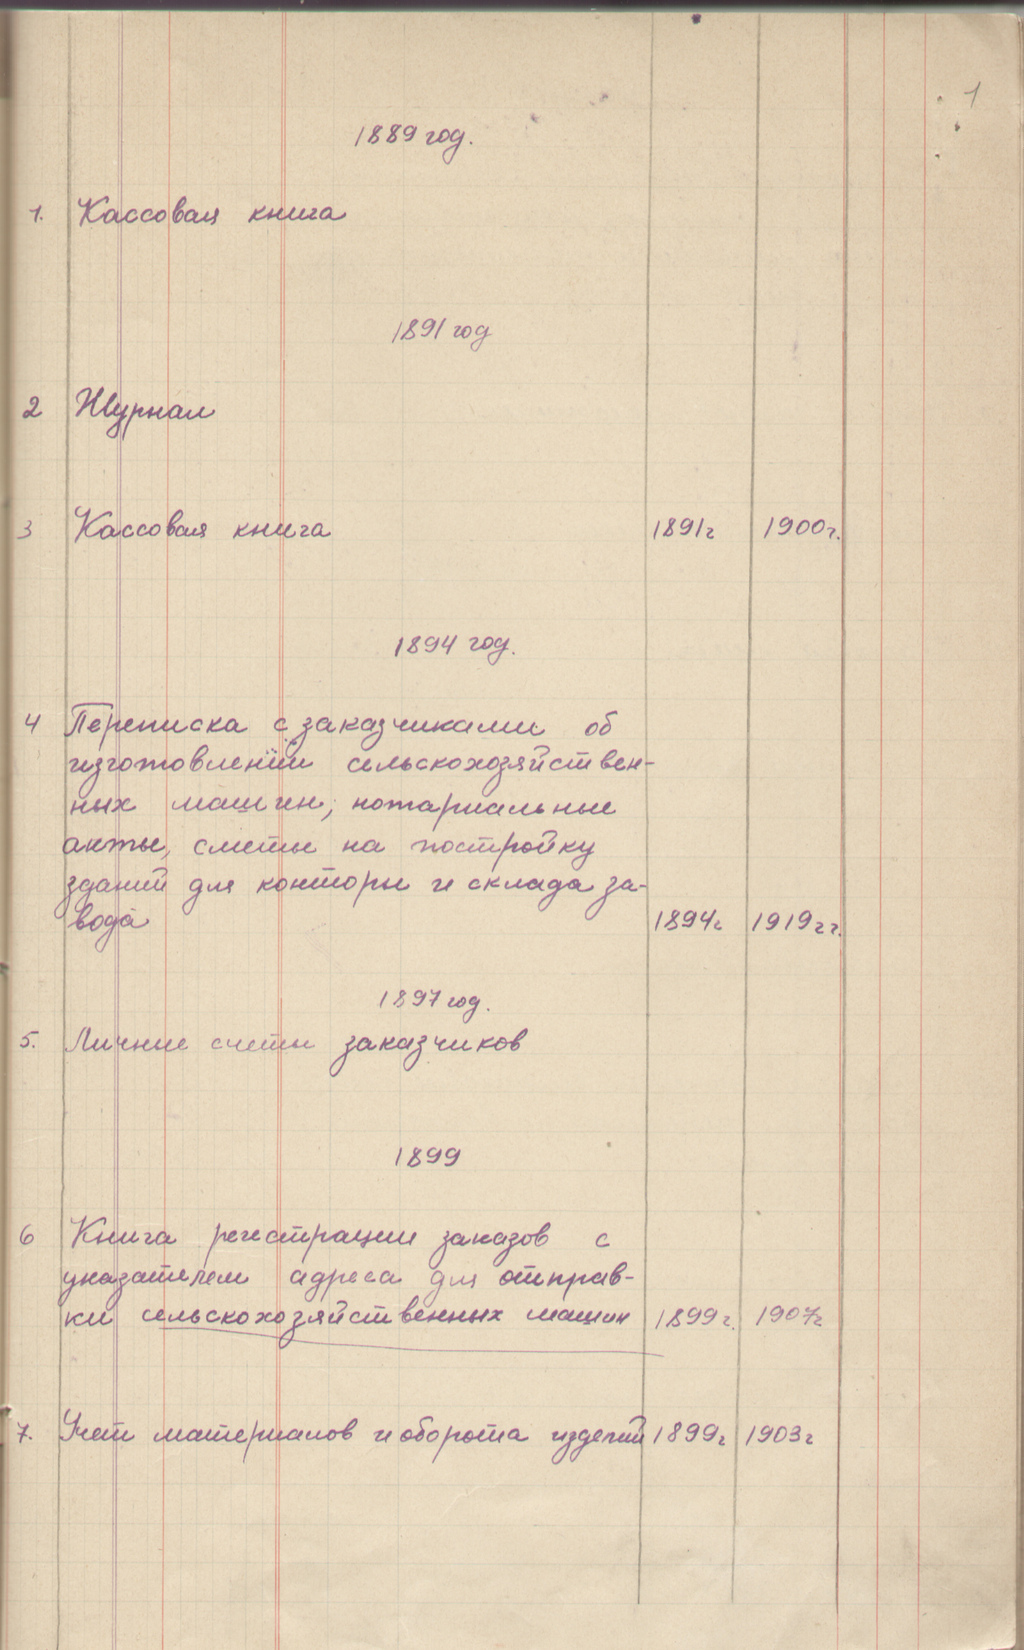 1
1889 год.
1. Кассовая книга
1891 год
2 Журнал
3 Кассовая книга 1891г 1900г.
1894 год.
4 Переписка с заказчиками об
изготовлении сельскохозяйствен-
ных машин, нотариальные
акты, сметы на постройку
зданий для конторы и склада за-
вода 1894г 1919гг.
1897 год.
5. Личные счеты заказчиков
1899
6 Книга регистрации заказов с
указателем адреса для отправ-
ки сельскохозяйственных машин 1899г. 1907г
7. Учет материалов и оборота изделий 1899г 1903г